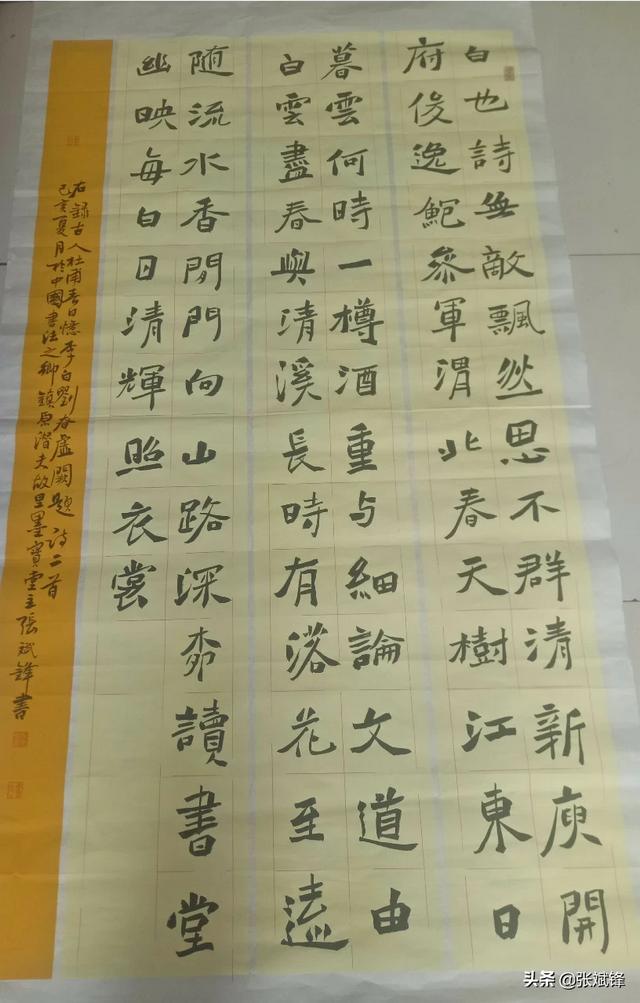 白也詩無敵飄然思不群清新庾開
府俊逸鮑參軍渭北春天樹江東日
暮雲何時一樽酒重与細論文道由
白雲盡春與清溪長時有落花至遠
随流水香閑門向山路深桺讀書堂
幽映每白日清輝照衣裳
右錄古人杜甫春日憶李白劉眘虛闕題詩二首
己亥夏月於中國書法之鄉鎮原潛夫故里墨寶堂主張斌鋒書
头条 @张斌锋